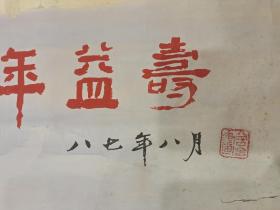 年益壽
八七年八月